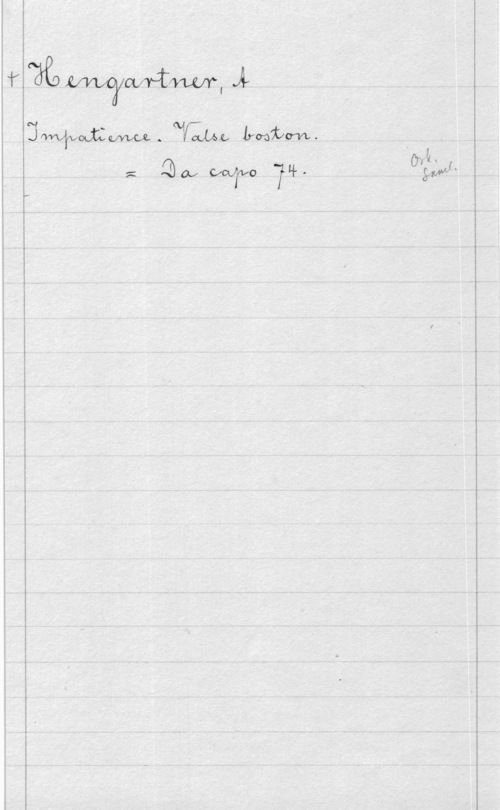 + Hengartner, A
Impatience. Valse boston.
= Da capo 74.
Ork.
Saml.